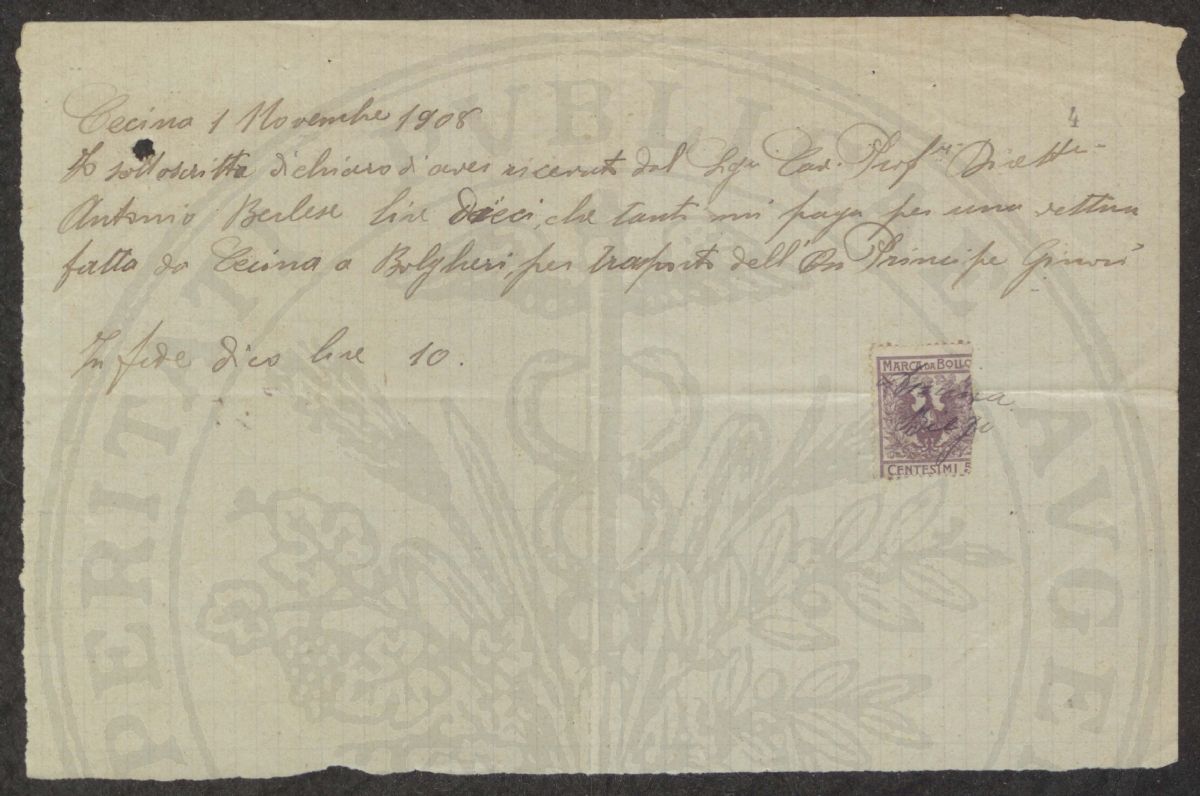 Cecina 1 Novembre 1908
4
Io sottoscritto dichiaro di aver ricevuto dal Sgr Cav. Prof. Dirett.
Antonio Berlese lire dieci, che tanti mi paga per una vettura
fatta da Cecina a Bolgheri per trasporto dell' On Principe Ginori
In fede dico lire 10.
MARCA DA BOLLO
CENTESIMI 5
PERITAT PVBLICAE AVGE